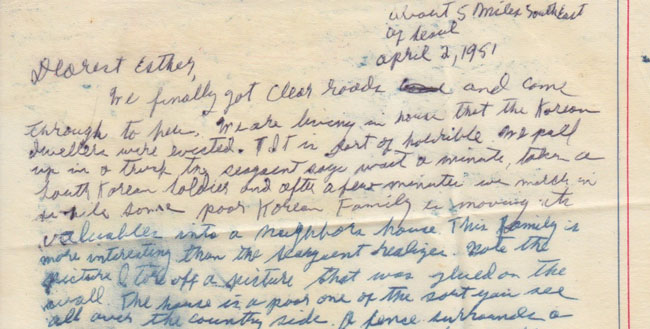 about 5 miles southeast
of Seoul
april 2, 1951
Dearest Esther,
We finally got clear roads and come
through to here. We are living in house that the Korean
dwellers were evicted. It is sort of horrible. We pull
up in a truck the seargent says wait a minute, takes a
South Korean soldier and after a few minutes we march in
while some poor Korean Family is moving its
valuables into a neighbors house This family is
more interesting than the seargent realizes. Note the
picture I tore off a picture that was glued on the
wall. The house is a poor one of the sort you see
all over the country side. A fence surrounds a